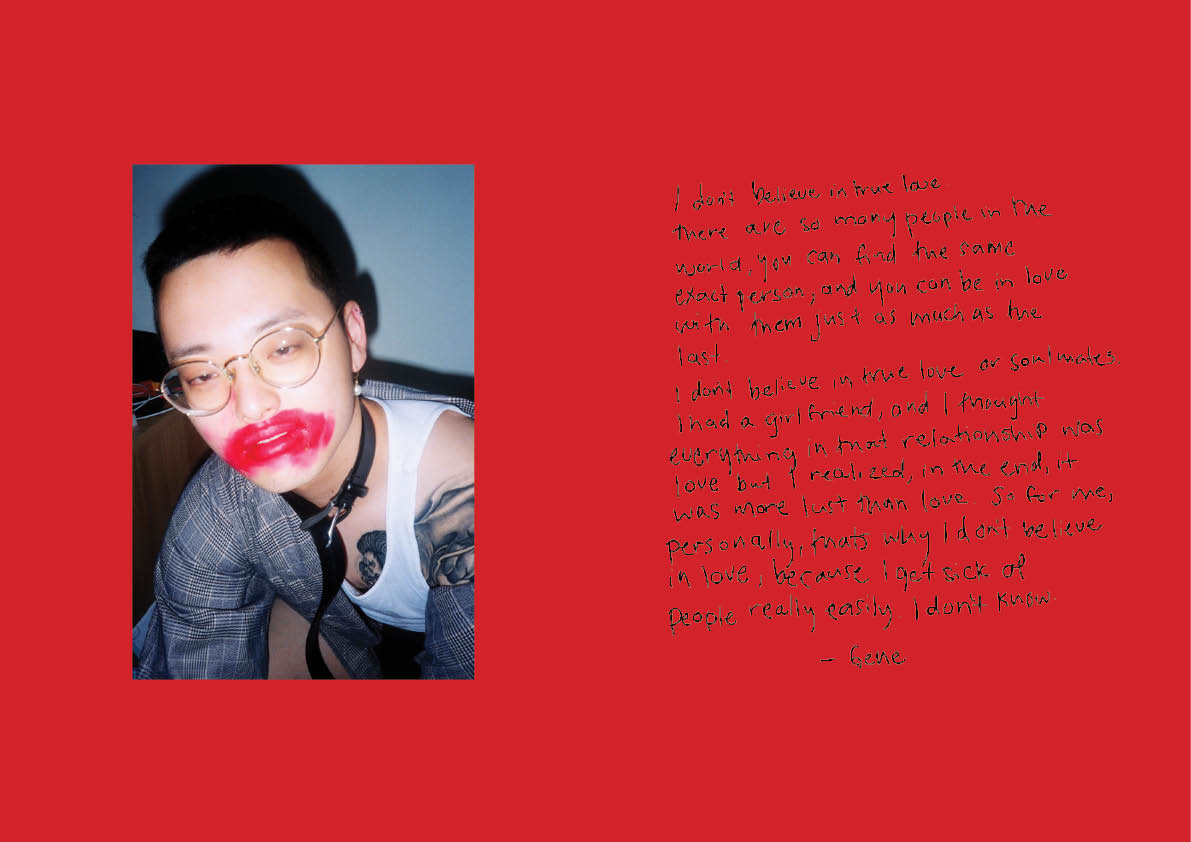 I don't believe in true love.
there are so many people in the
world, you can find the same
exact person, and you can be in love
with them just as much as the
last.
I don't believe in true love or soulmates.
I had a girlfriend, and I thought
everything in that relationship was
love but I realized, in the end, it
was more lust than love. So for me,
personally, thats why I dont believe
in love, because I get sick of
people really easily. I don't know.
- Gene